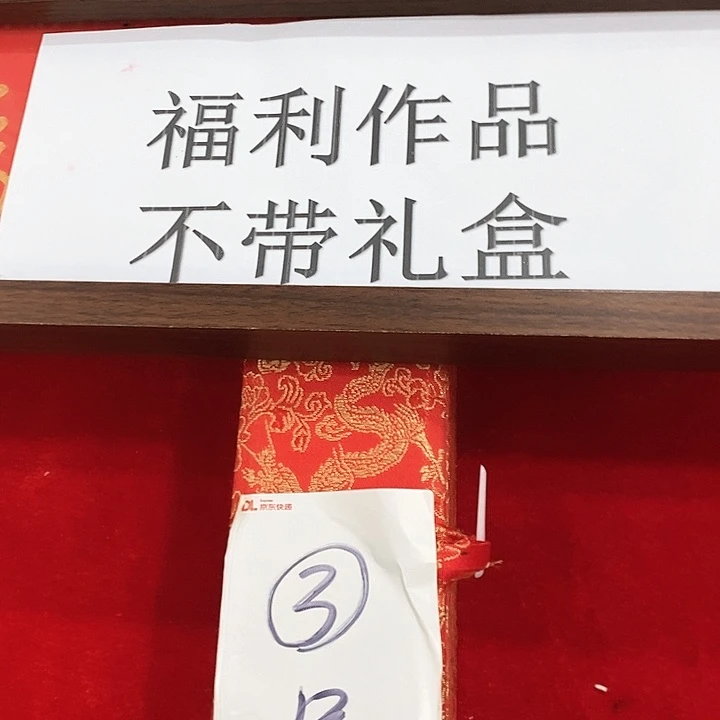 福利作品
不带礼盒
京东快递
③